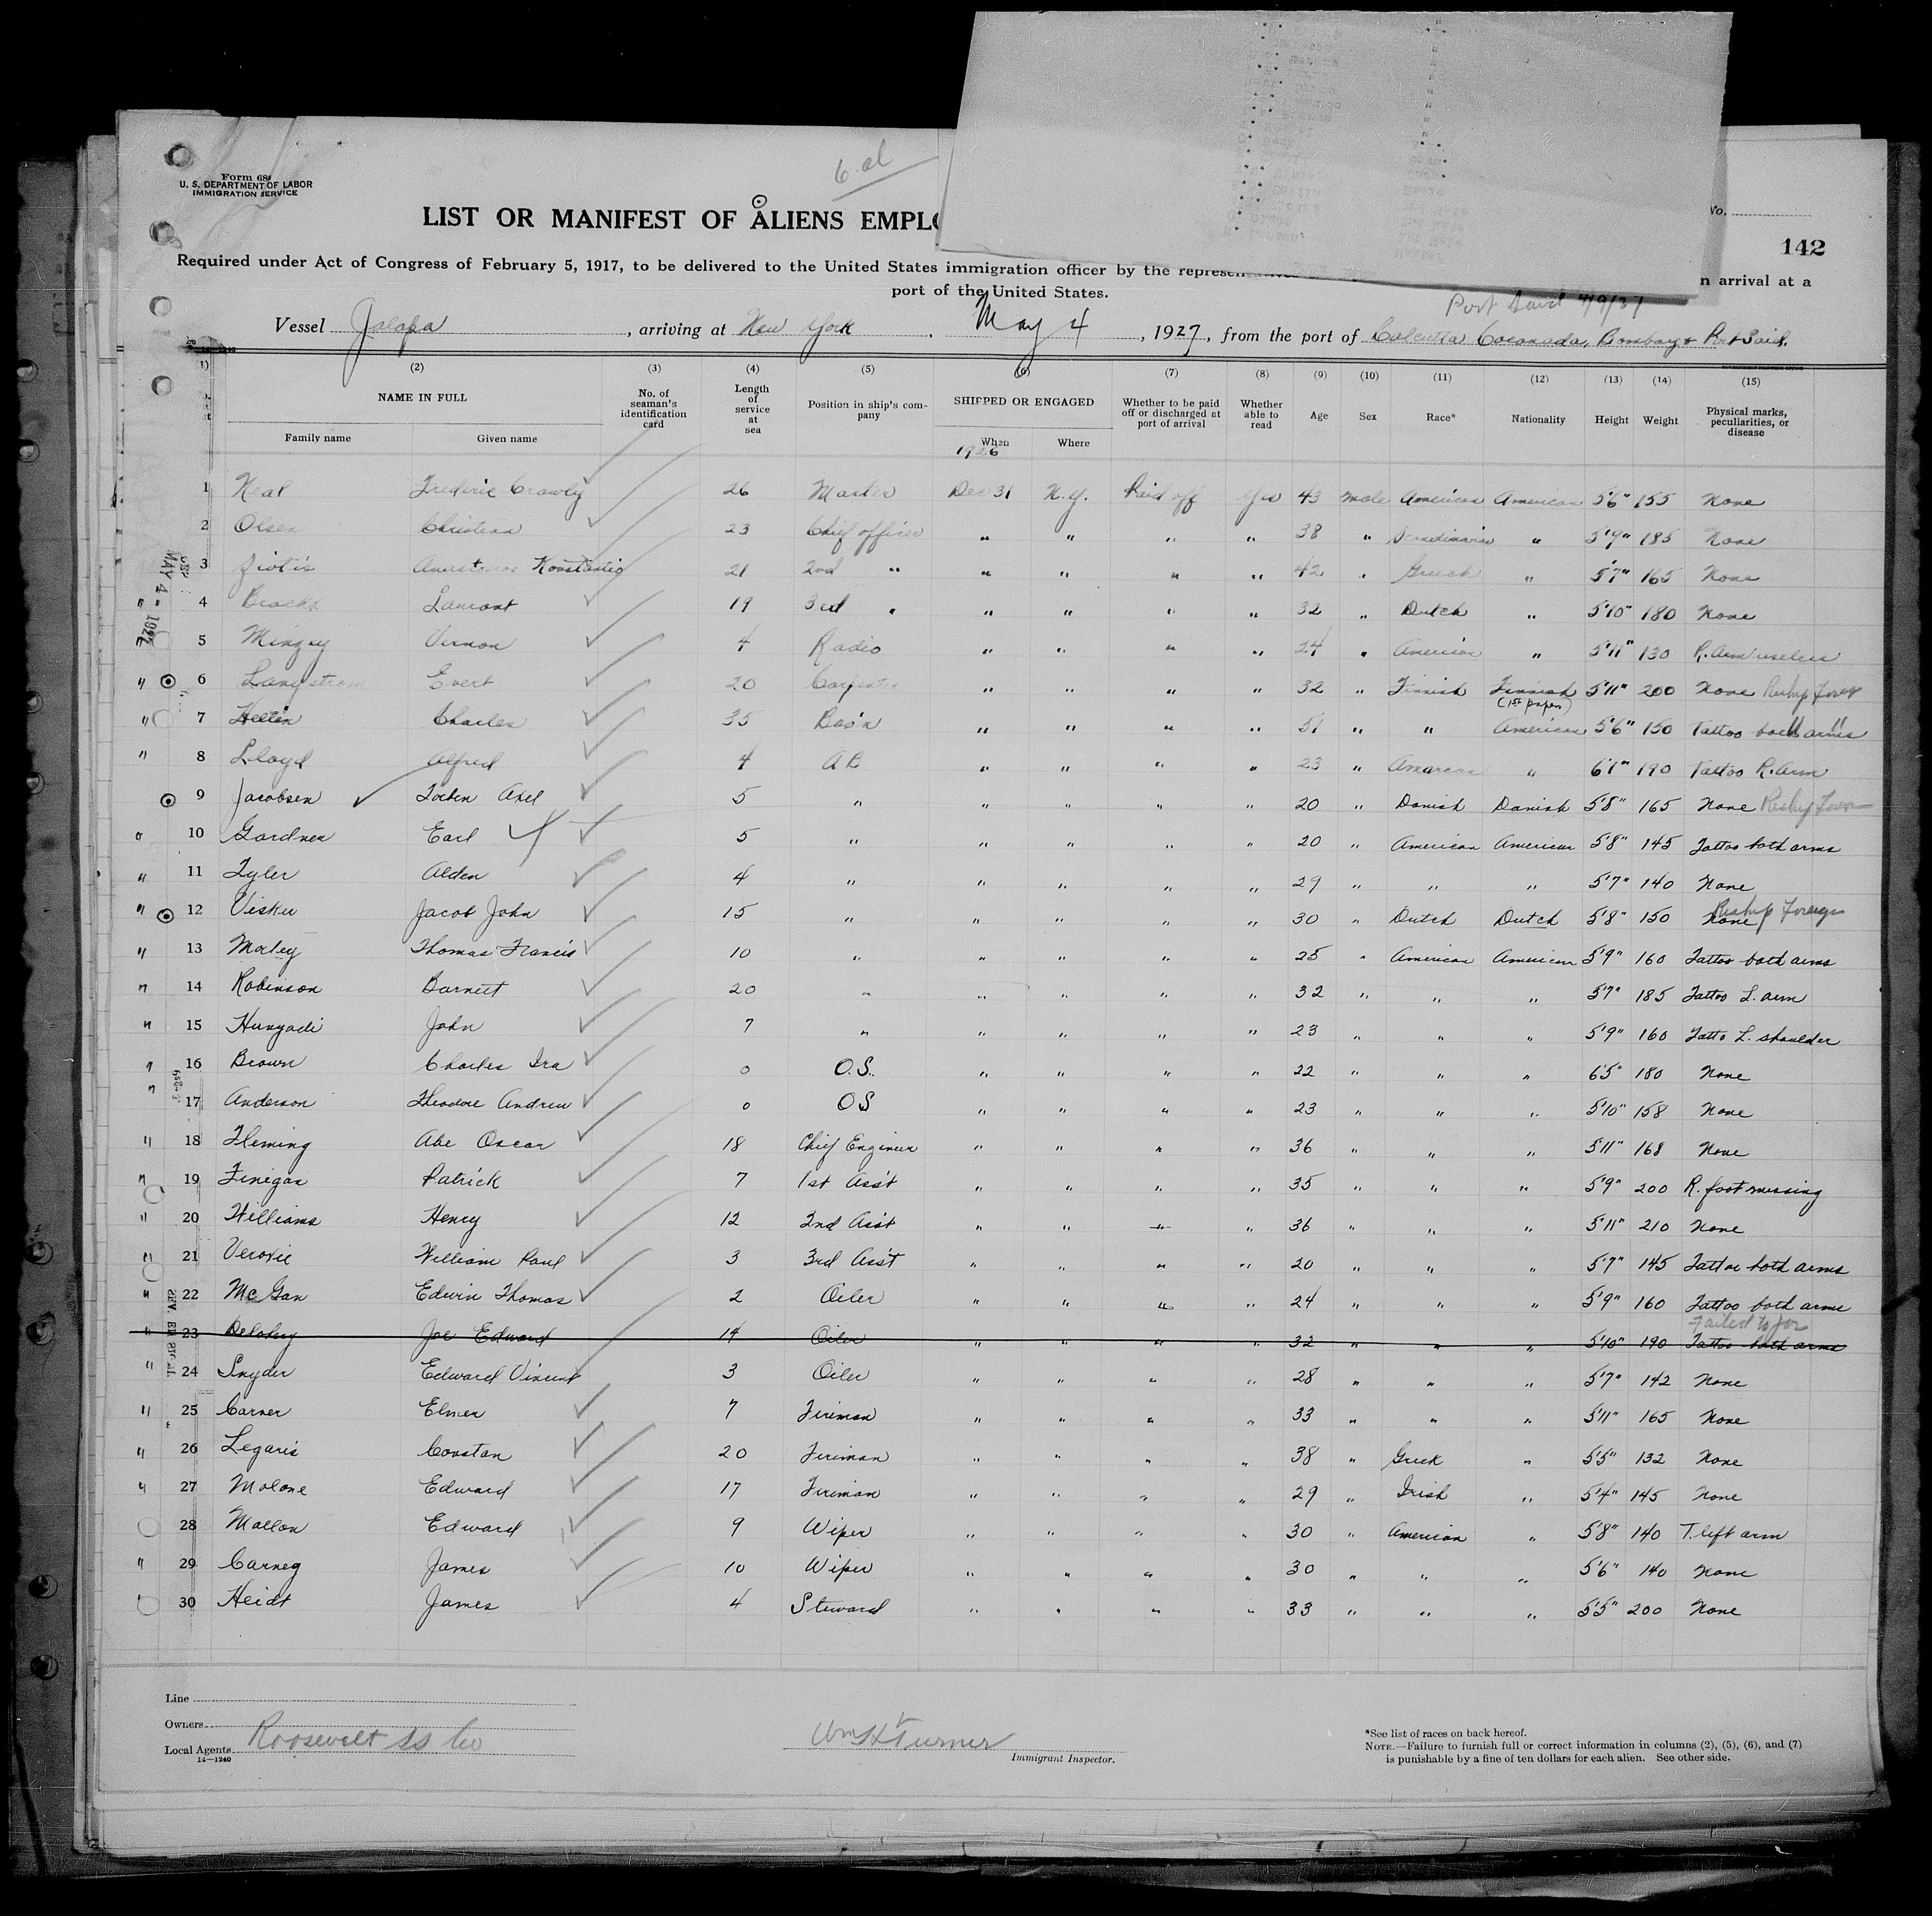 6 al
Form 68
U. S. DEPARTMENT OF LABOR
IMMIGRATION SERVICE
LIST OR MANIFEST OF ALIENS EMPLO
No.
142
Required under Act of Congress of February 5, 1917, to be delivered to the United States immigration officer by the represen n arrival at a
port of the United States.
Port Said 4/9/27
Vessel Jalapa, arriving at New York, May 4, 1927, from the port of Calcutta Cocanada, Bombay & Port Said.
(1) (2) (3) (4) (5) (6) (7) (8) (9) (10) (11) (12) (13) (14) (15)
NAME IN FULL No. of seaman's identification card Length of service at sea Position in ship's company SHIPPED OR ENGAGED Whether to be paid off or discharged at port of arrival Whether able to read Age Sex Race* Nationality Height Weight Physical marks, peculiarities, or disease
Family name Given name When Where
1926
1 Neal Frederic Crawley 26 Master Dec 31 N.Y. Paid off Yes 43 male American American 5'6" 155 None
2 Olsen Christian 23 Chief officer " " " " 38 " Scandinavian " 5'9" 185 None
3 Ziotis Konstantio 21 2nd " " " " " 42 " Greek " 5'7" 165 None
4 Lamont 19 3rd " " " " " 32 " Dutch " 5'10" 180 None
5 Mingay Vernon 4 Radio " " " " 24 " American " 5'11" 130 R. Arm useless
6 Langstrom Evert 20 Carpenter " " " " 32 " Finnish Finnish (1st papers) 5'11" 200 None Reship Foreign
7 Charles 35 Bos'n " " " " 51 " " American 5'6" 150 Tattoo both arms
8 Lloyd Alfred 4 AB " " " " 23 " American " 6'1" 190 Tattoo R. Arm
9 Jacobsen Axel 5 " " " " " 20 " Danish Danish 5'8" 165 None Reship Foreign
10 Gardner Earl 5 " " " " " 20 " American American 5'8" 145 Tattoo both arms
11 Tyler Alden 4 " " " " " 29 " " " 5'7" 140 None
12 Visker Jacob John 15 " " " " " 30 " Dutch Dutch 5'8" 150 None Reship Foreign
13 Morley Thomas Francis 10 " " " " " 25 " American American 5'9" 160 Tattoo both arms
14 Robinson Barnett 20 " " " " " 32 " " " 5'7" 185 Tattoo L. arm
15 Hunyadi John 7 " " " " " 23 " " " 5'9" 160 Tatto L. shoulder
16 Brown Charles Ira 0 O.S. " " " " 22 " " " 6'5" 180 None
17 Anderson Theodore Andrew 0 OS " " " " 23 " " " 5'10" 158 None
18 Fleming Abe Oscar 18 Chief Engineer " " " " 36 " " " 5'11" 168 None
19 Finigan Patrick 7 1st Ass't " " " " 35 " " " 5'9" 200 R. foot missing
20 Williams Henry 12 2nd Ass't " " " " 36 " " " 5'11" 210 None
21 William Paul 3 3rd Ass't " " " " 20 " " " 5'7" 145 Tattoo both arms
22 McGan Edwin Thomas 2 Oiler " " " " 24 " " " 5'9" 160 Tattoo both arms
Failed to join
23 Joe Edward 14 Oiler " " " " 32 " " " 5'10" 190 Tattoo both arms
24 Snyder Edward Vincent 3 Oiler " " " " 28 " " " 5'7" 142 None
25 Carner Elmer 7 Fireman " " " " 33 " " " 5'11" 165 None
26 Legaris Constan 20 Fireman " " " " 38 " Greek " 5'5" 132 None
27 Malone Edward 17 Fireman " " " " 29 " Irish " 5'4" 145 None
28 Mallon Edward 9 Wiper " " " " 30 " American " 5'8" 140 T. left arm
29 Carney James 10 Wiper " " " " 30 " " " 5'6" 140 None
30 Heidt James 4 Steward " " " " 33 " " " 5'5" 200 None
MAY 4 - 1927
Line
Owners
Local Agents Roosevelt SS Co
14—1240
Wm H Turner
Immigrant Inspector.
*See list of races on back hereof.
NOTE.—Failure to furnish full or correct information in columns (2), (5), (6), and (7)
is punishable by a fine of ten dollars for each alien. See other side.